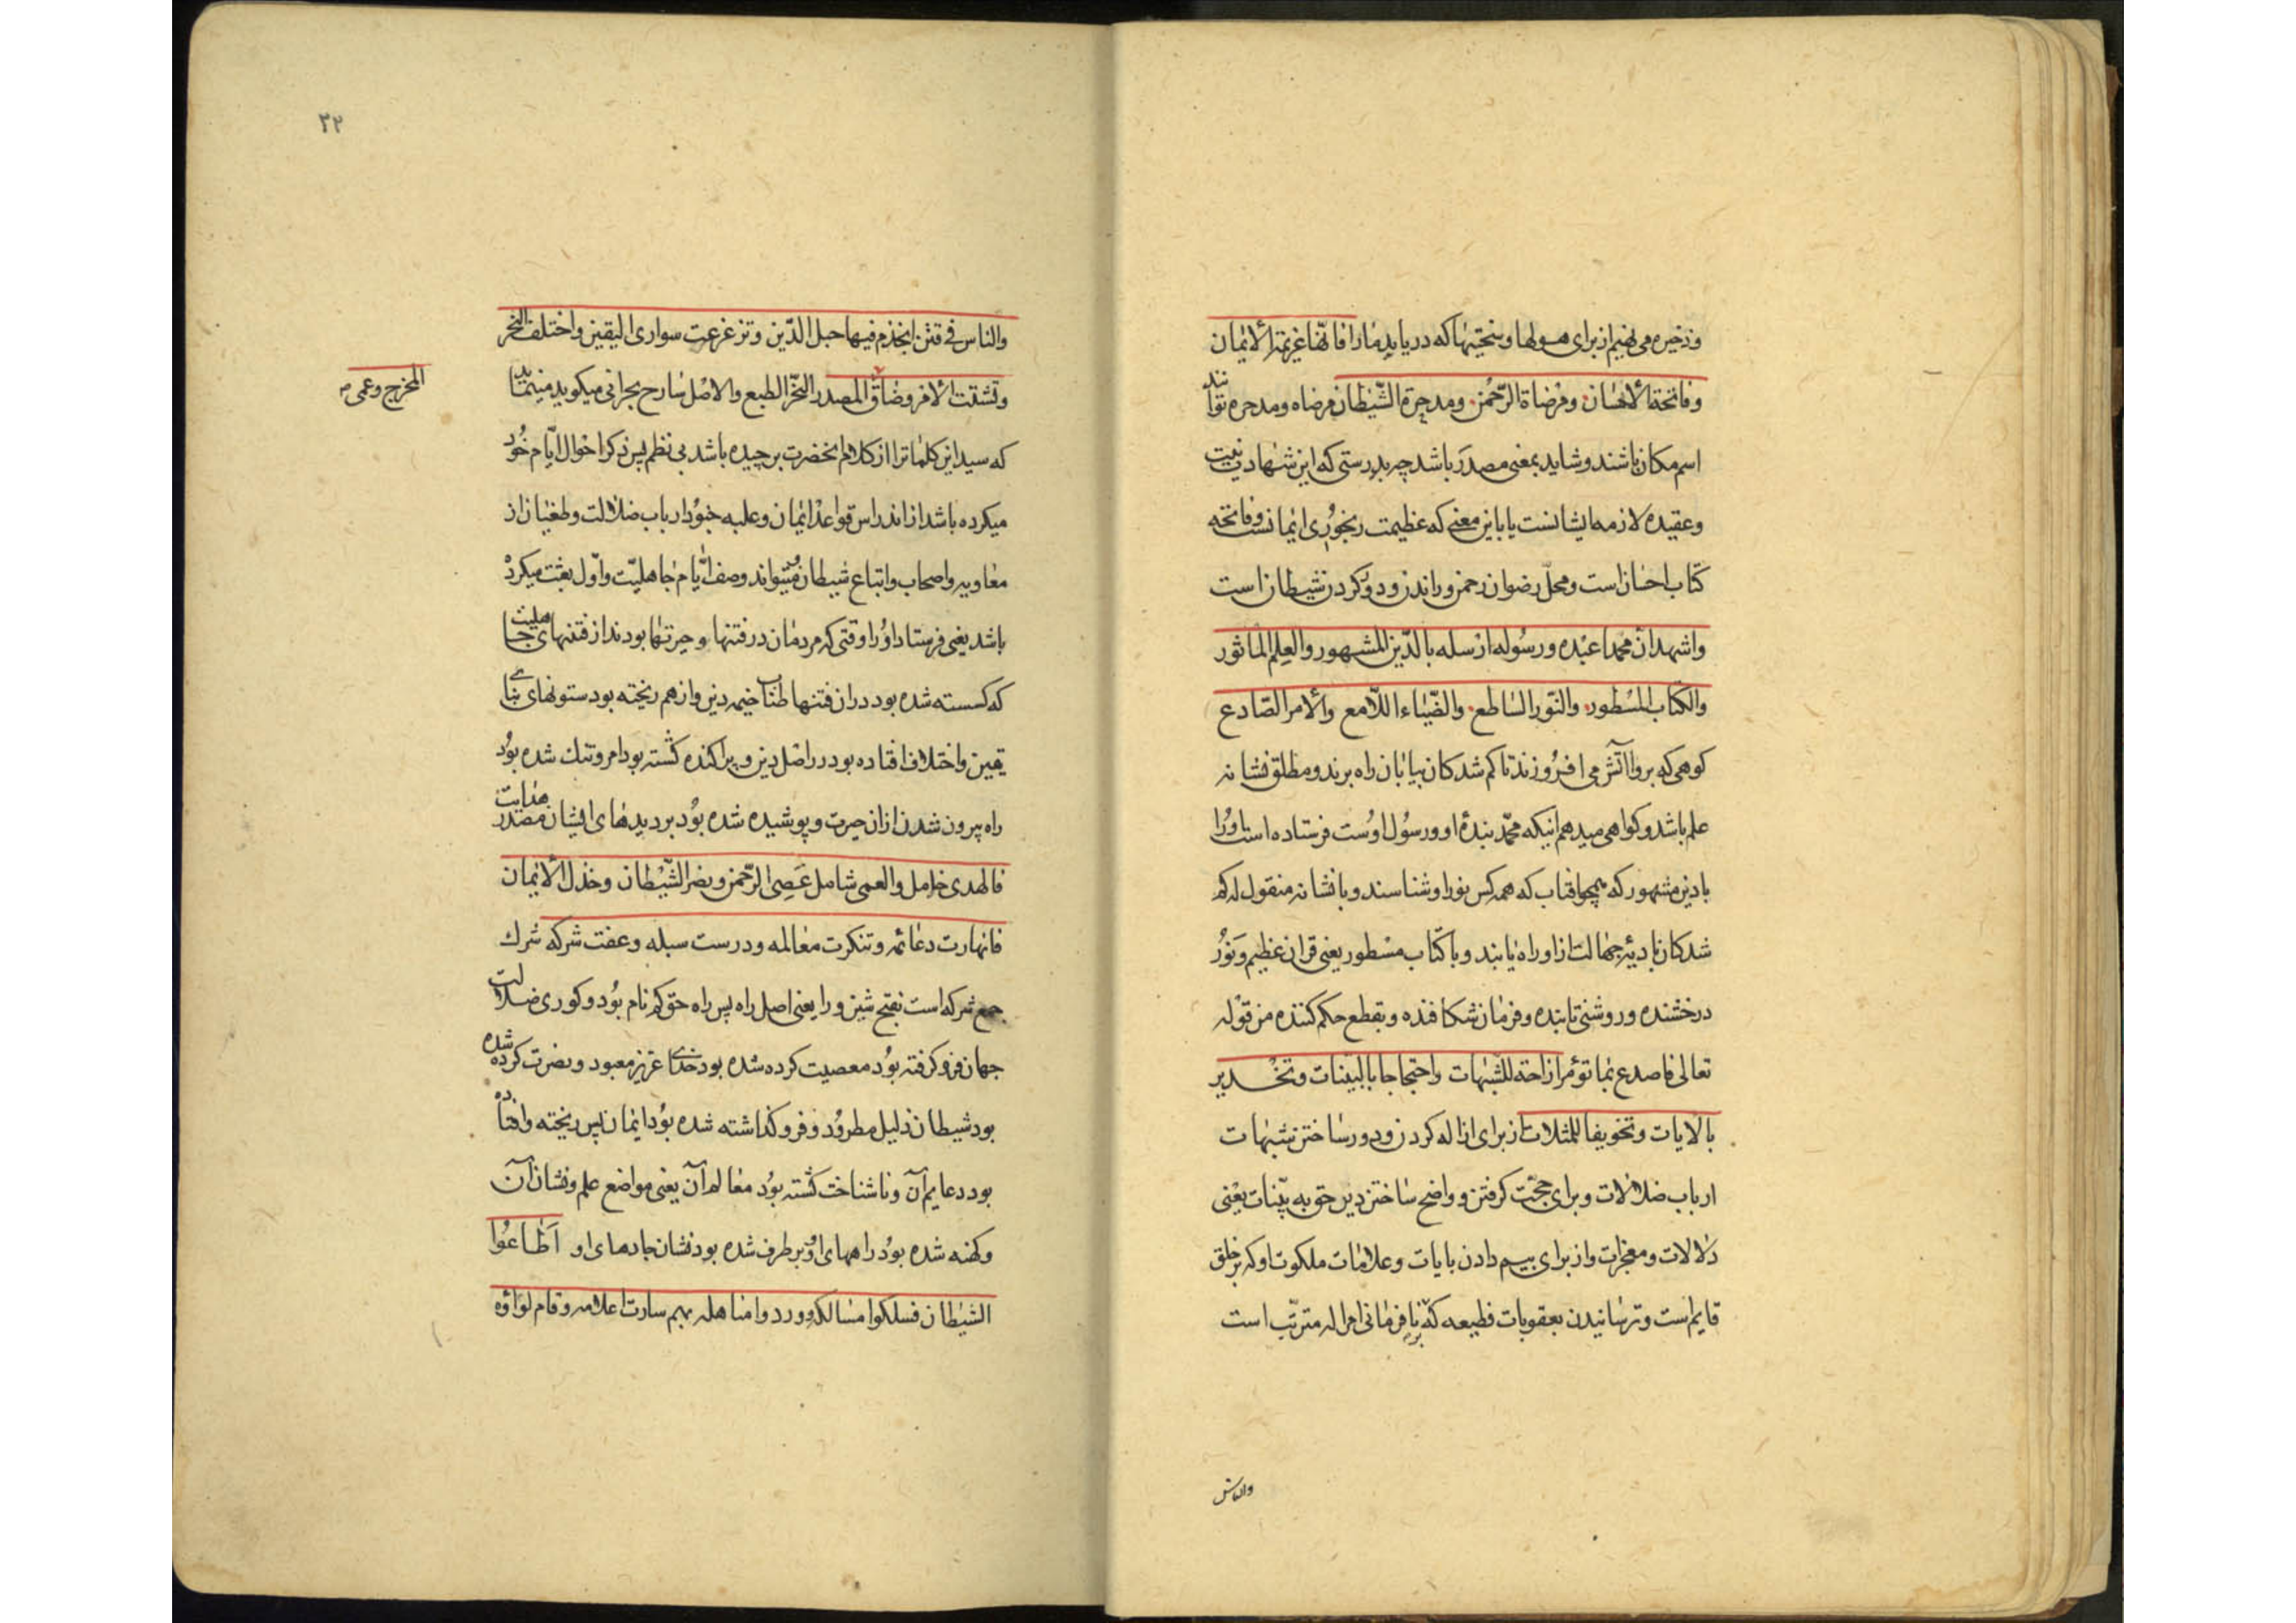 وذخیره می نهیم از برای هولها وسختیها که دریابد مارا فانّها عزیمة الایمان
وفاتحة الاحسان ومرضاة الرّحمن ومدحرة الشّیطان مرضاه ومدحره توانند
اسم مکان باشند وشاید بمعنی مصدر باشد چه بدرستی که این شهادت نیت
وعقیدهٔ لازمه ایشانست یا باین معنی که عظیمت رنجوری ایمانست وفاتحه
کتاب احسان است ومحلّ رضوان رحمن وراندن ودور کردن شیطان است
واشهد انّ محمدا عبده ورسوله ارسله بالدّین المشهور والعلم الماثور
والکتاب المسطور والنّور الساطع والضّیاء اللّامع والامر الصّادع
کوهی که برو اآتش می افروزند تا کم شدکان بیابان راه برند ومطلق نشانه
علم باشد وکواهی میدهم اینکه محمّد بندهٔ او ورسول اوست فرستاده است اورا
بادین مشهور که همچو افتاب که همه کس نور او شناسند وبا نشانه منقول که کم
شدکان بادیهٔ جهالت ازاو راه یابند وبا کتاب مسطور یعنی قران عظیم ونور
درخشنده وروشنی تابنده وفرمان شکافنده وبقطع حکم کننده من قوله
تعالی فاصدع بما تؤمر ازاحة للشّبهات واحتجاجا بالبیّنات وتحذیر
بالایات وتخویفا للمثلات از برای ازاله کردن ودور ساختن شبهات
ارباب ضلالات وبرای حجّت کرفتن وواضح ساختن دین حق به بیّنات یعنی
دلالات ومعجزات واز برای بیم دادن بایات وعلامات ملکوت او که بر خلق
قایم است وترسانیدن بعقوبات فظیعه که بر نافرمانی امر اله مترتّب است
والناس
۳۲
والناس فی فتن انجذم فیها حبل الدّین وتزعزعت سواری الیقین واختلف النّجر
وتشتّت الامر وضاق المصدر النّجر الطبع والاصل شارح بحرانی میکوید میتماند
المخرج وعمی
که سید این کلماترا از کلام انحضرت برچیده باشد بی نظم پس ذکر احوال ایّام خود
میکرده باشد از اندراس قواعد ایمان وغلبه جنود ارباب ضلالت وطغیان از
معاویه واصحاب واتباع شیطان ومیتواند وصف ایّام جاهلیّت واوّل بعثت میکرده
باشد یعنی فرستاد اورا وقتی که مردمان در فتنها وحیرتها بودند از فتنهای جاهلیت
که کسسته شده بود دران فتنها طناب خیمه دین وازهم ریخته بود ستونهای بنای
یقین واختلاف افتاده بود در اصل دین وپراکنده کشته بود امر وتنك شده بود
راه بیرون شدن ازان حیرت وپوشیده شده بود بر دیدهای ایشان مصدر هدایت
فالهدی خامل والعمی شامل عصی الرّحمن ونصر الشّیطان وخذل الایمان
فانهارت دعائمه وتنکرت معالمه ودرست سبله وعفت شرکه شرك
جمع شرکه است بفتح شین ورا یعنی اصل راه پس راه حق کم نام بود وکوری ضلالت
جهان فرو کرفته بود معصیت کرده شده بود خدای عزیز معبود ونصرت کرده شده
بود شیطان ذلیل مطرود وفرو کذاشته شده بود ایمان پس ریخته وافتاده
بود دعایم آن وناشناخت کشته بود معالم آن یعنی مواضع علم ونشان آن
وکهنه شده بود راههای او وبر طرف شده بود نشان جادهای او اطاعوا
الشیطان فسلکوا مسالکه ووردوا مناهله بهم سارت اعلامه وقام لواؤه